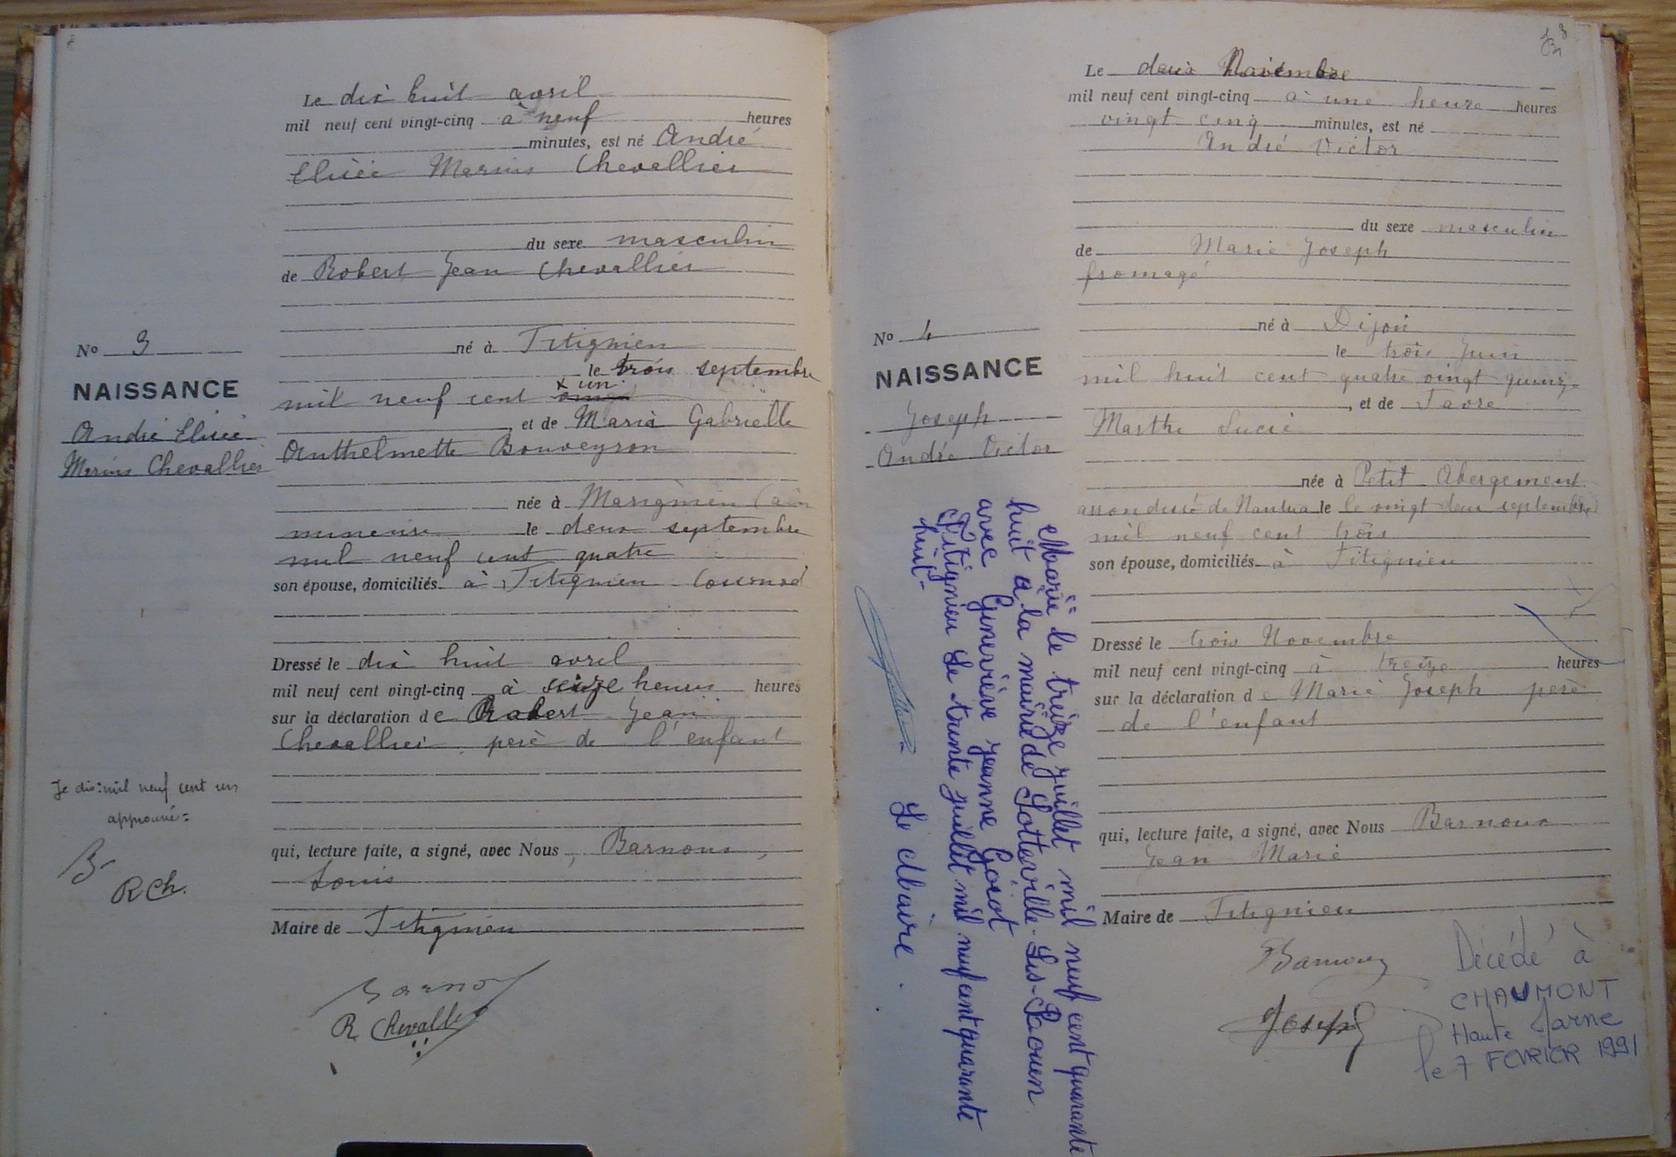 Le dix huit avril
mil neuf cent vingt-cinq à neuf heures
minutes, est né André
Elisée Marius Chevallier
du sexe masculin
de Robert Jean Chevallier
No 3
NAISSANCE
André Elisée
Marius Chevallier
né à Titignieu
le trois septembre
x un
mil neuf cent
, et de Maria Gabrielle
Anthelmette Bouveyron
née à Marignieu (ain
le deux septembre
mil neuf cent quatre
son épouse, domiciliés à Titignieu
Dressé le dix huit avril
mil neuf cent vingt-cinq à seize heures heures
sur la déclaration de Robert Jean
Chevallier père de l'enfant
Je dis: mil neuf cent un
approuvé:
B-
R Ch.
qui, lecture faite, a signé, avec Nous, Barnoux,
Louis
Maire de Titignieu
Barno
R Chevallier
Le deux Novembre
mil neuf cent vingt-cinq à une heure heures
vingt cinq minutes, est né
André Victor
du sexe masculin
de Marie Joseph
fromagé
No 4
NAISSANCE
Joseph
André Victor
né à Dijon
le trois Juin
mil huit cent quatre vingt quinze
, et de Favre
Marthe Lucie
née à Petit Abergement
arrondissé de Nantua le le vingt deux septembre
mil neuf cent trois
son épouse, domiciliés à Titignieu
Dressé le trois Novembre
mil neuf cent vingt-cinq à treize heures
sur la déclaration de Marie Joseph père
de l'enfant
qui, lecture faite, a signé, avec Nous Barnoux
Jean Marie
Maire de Titignieu
Barnoux
Joseph
Marié le treize juillet mil neuf cent quarante
huit à la mairie de Sotteville-Les-Rouen
avec Geneviève Jeanne Gosot
Titignieu Le trente juillet mil neuf cent quarante
huit-
Le Maire.
Décédé à
CHAUMONT
Haute Marne
le 7 FEVRIER 1991